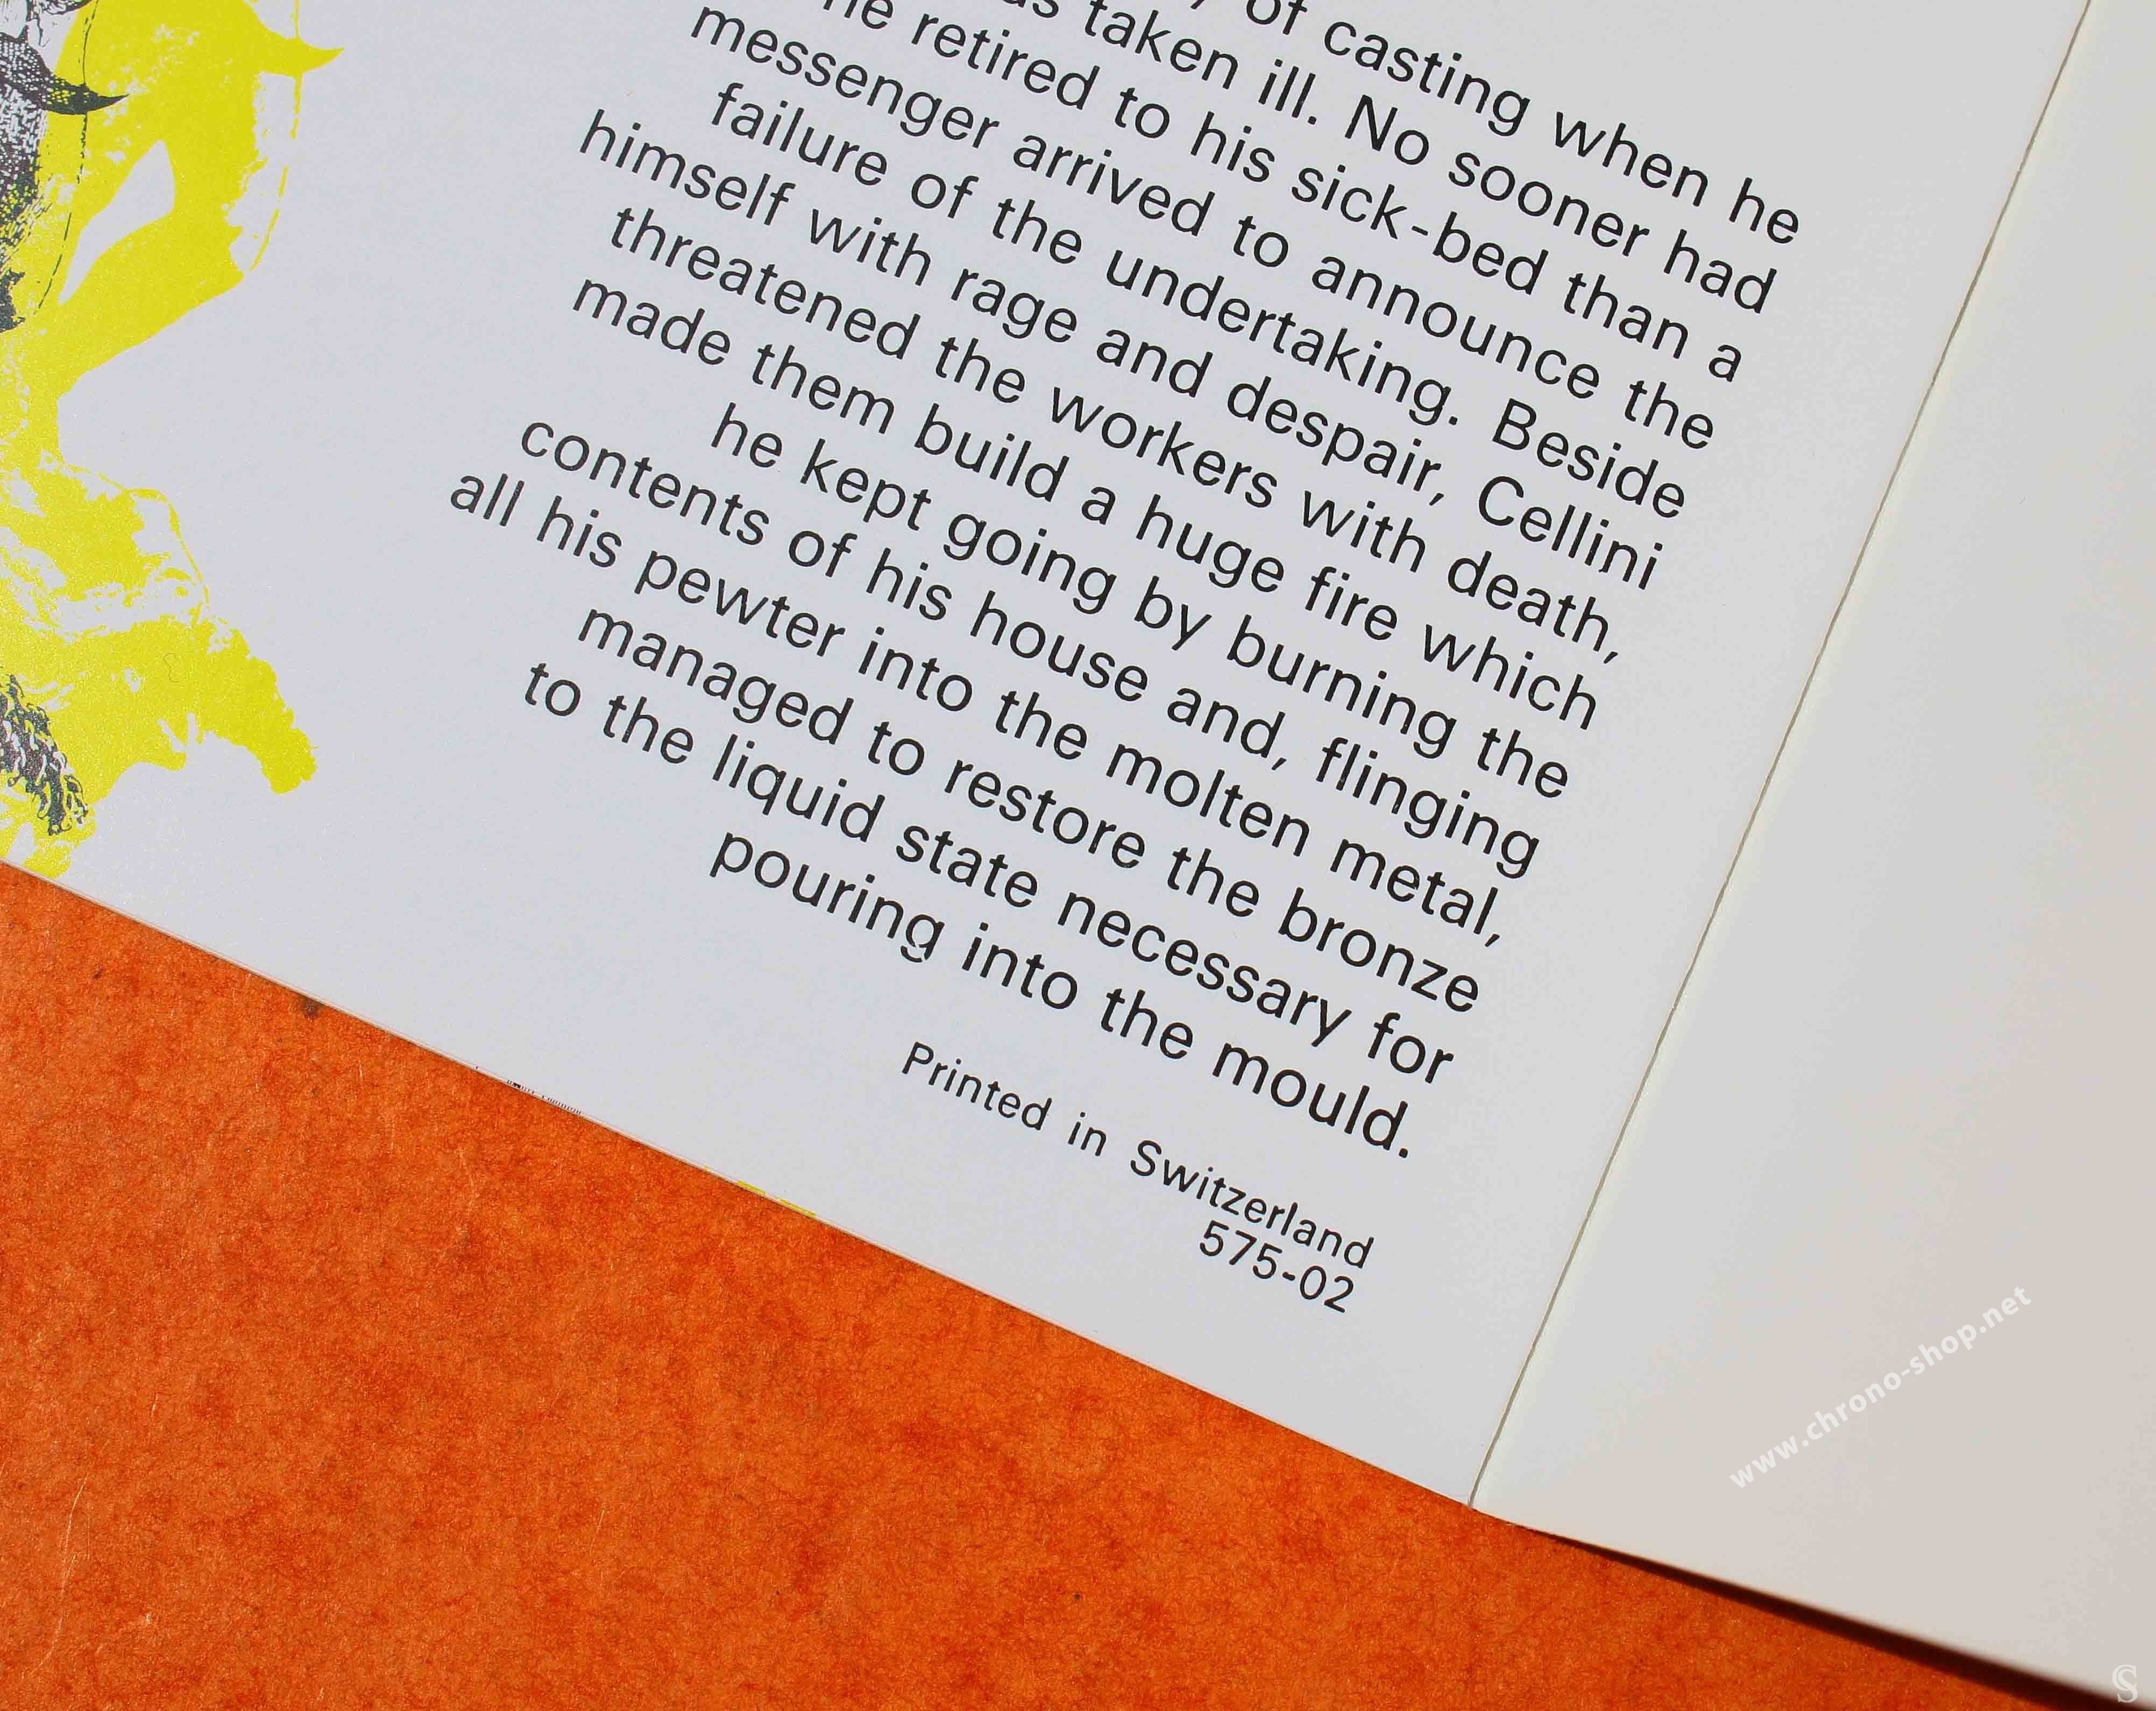 of casting when he
taken ill. No sooner had
he retired to his sick-bed than a
messenger arrived to announce the
failure of the undertaking. Beside
himself with rage and despair, Cellini
threatened the workers with death,
made them build a huge fire which
he kept going by burning the
contents of his house and, flinging
all his pewter into the molten metal,
managed to restore the bronze
to the liquid state necessary for
pouring into the mould.
Printed in Switzerland
575-02
www.chrono-shop.net